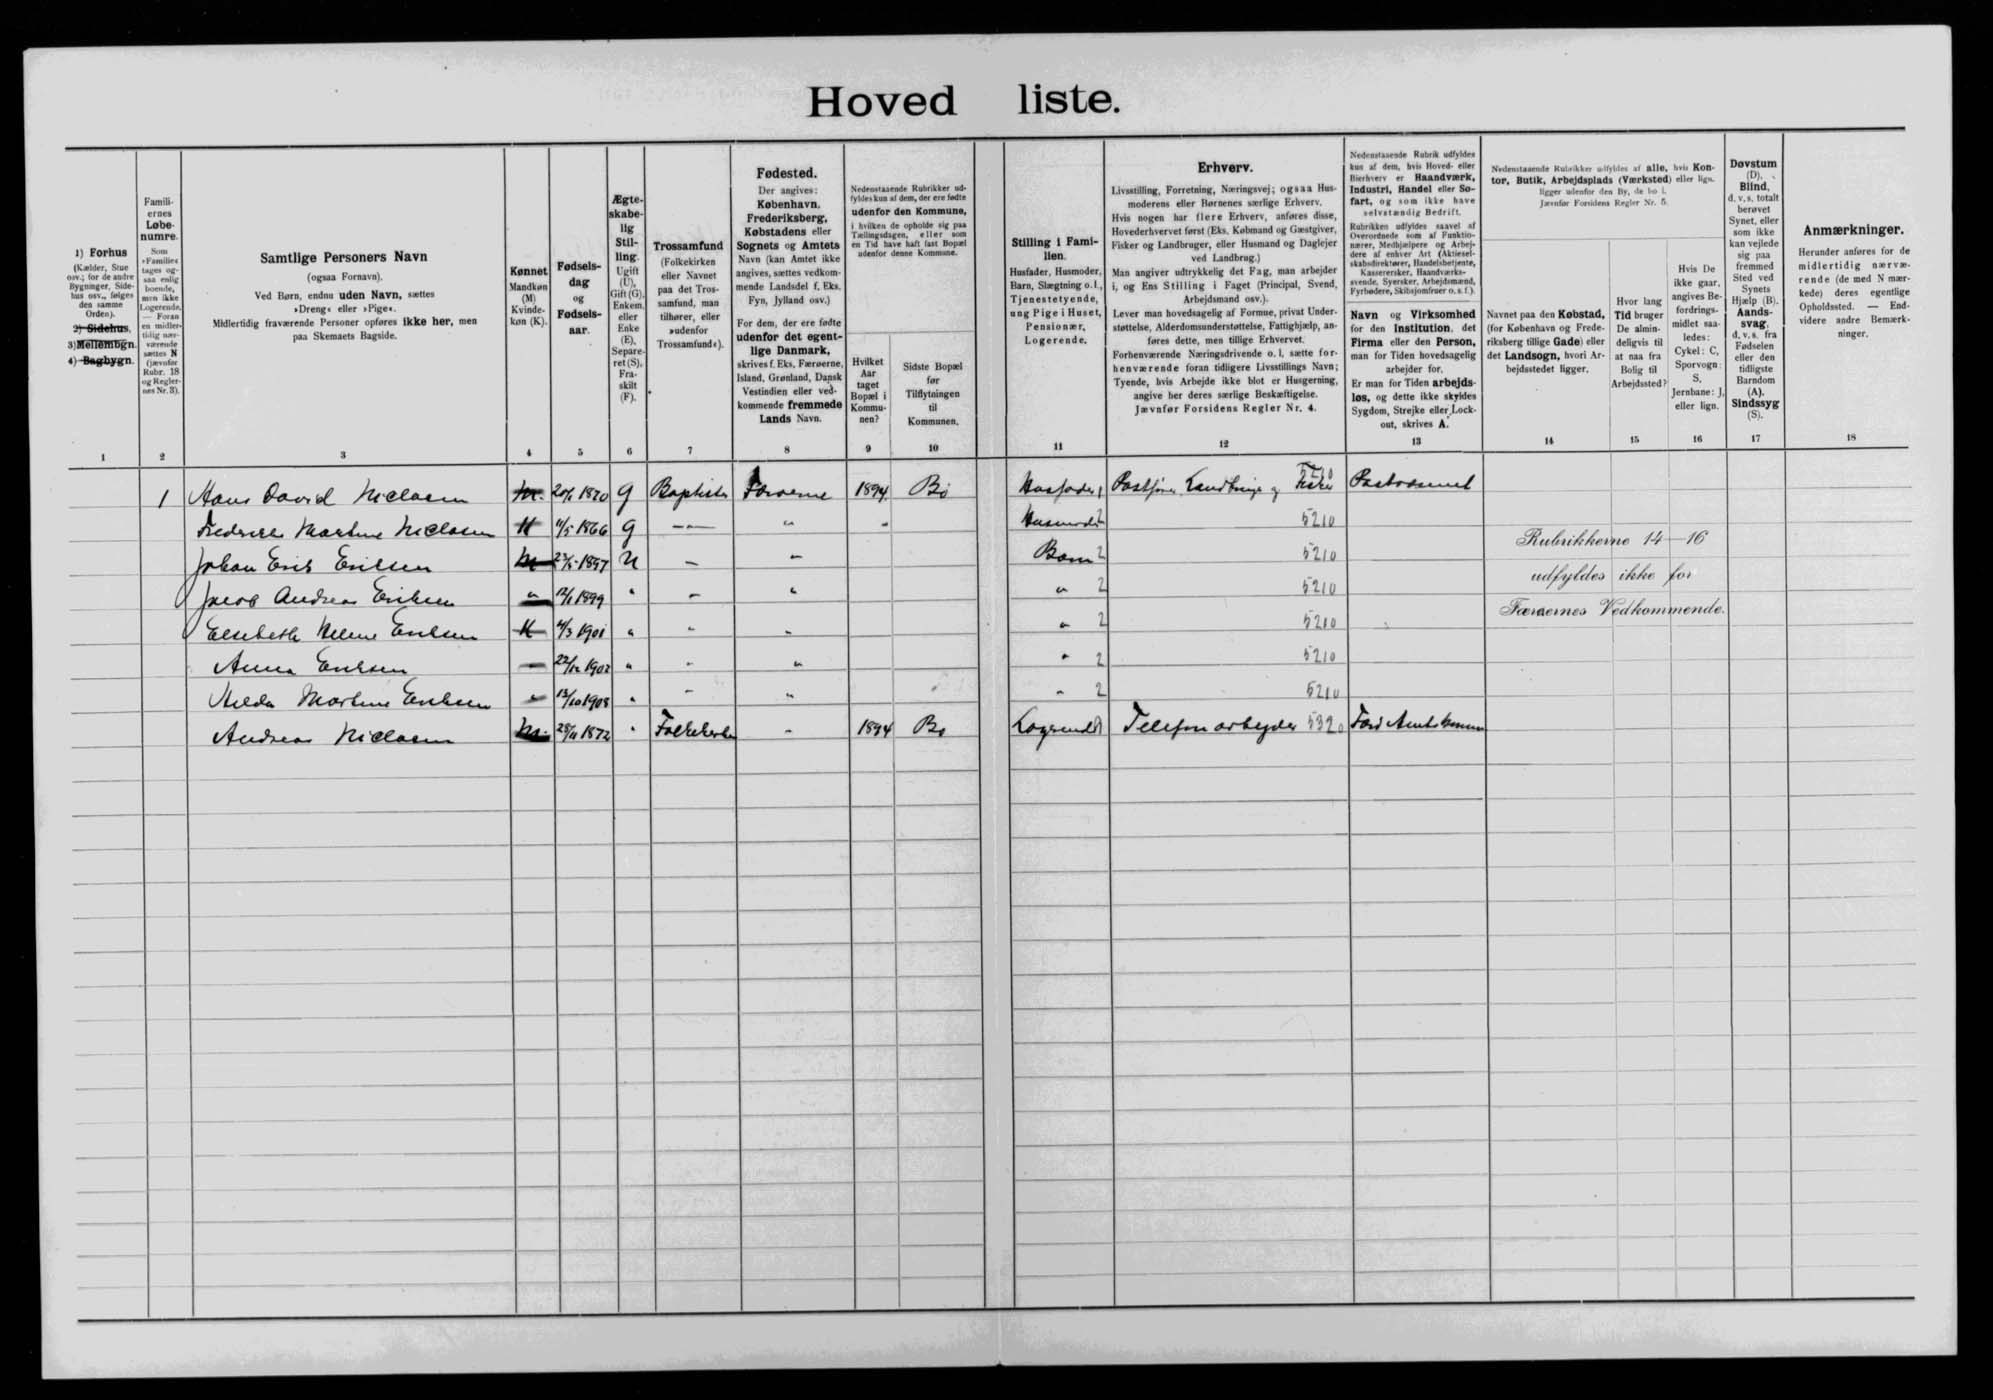 Hoved liste.
1) Forhus
(Kælder, Stue
osv.; for de andre
Bygninger, Side-
hus osv., følges
den samme
Orden).
2) Sidehus,
3) Mellembgn.
4) Bagbygn.
1
Famili-
ernes
Løbe-
numre.
Som
»Familie«
tages og-
saa enlig
boende,
men ikke
Logerende.
— Foran
en midler-
tidig nær-
værende
sættes N
(jævnfør
Rubr. 18
og Regler-
nes Nr. 3).
2
Samtlige Personers Navn
(ogsaa Fornavn).
Ved Børn, endnu uden Navn, sættes
»Dreng« eller »Pige«.
Midlertidig fraværende Personer opføres ikke her, men
paa Skemaets Bagside.
3
Kønnet
Mandkøn
(M)
Kvinde-
køn (K).
4
Fødsels-
dag
og
Fødsels-
aar.
5
Ægte-
skabe-
lig
Stil-
ling.
Ugift
(U),
Gift (G),
Enkem.
eller
Enke
(E),
Separe-
ret (S),
Fra-
skilt
(F).
6
Trossamfund
(Folkekirken
eller Navnet
paa det Tros-
samfund, man
tilhører, eller
»udenfor
Trossamfund«).
7
Fødested.
Der angives:
København,
Frederiksberg,
Købstadens eller
Sognets og Amtets
Navn (kan Amtet ikke
angives, sættes vedkom-
mende Landsdel f. Eks.
Fyn, Jylland osv.)
For dem, der ere fødte
udenfor det egent-
lige Danmark,
skrives f. Eks. Færøerne,
Island, Grønland, Dansk
Vestindien eller ved-
kommende fremmede
Lands Navn.
8
Nedenstaaende Rubrikker ud-
fyldes kun af dem, der ere fødte
udenfor den Kommune,
i hvilken de opholde sig paa
Tællingsdagen, eller som
en Tid have haft fast Bopæl
udenfor denne Kommune.
Hvilket
Aar
taget
Bopæl i
Kommu-
nen?
9
Sidste Bopæl
før
Tilflytningen
til
Kommunen.
10
Stilling i Fami-
lien.
Husfader, Husmoder,
Barn, Slægtning o. l.,
Tjenestetyende,
ung Pige i Huset,
Pensionær,
Logerende.
11
Erhverv.
Livsstilling, Forretning, Næringsvej; ogsaa Hus-
moderens eller Børnenes særlige Erhverv.
Hvis nogen har flere Erhverv, anføres disse,
Hovederhvervet først (Eks. Købmand og Gæstgiver,
Fisker og Landbruger, eller Husmand og Daglejer
ved Landbrug.)
Man angiver udtrykkelig det Fag, man arbejder
i, og Ens Stilling i Faget (Principal, Svend,
Arbejdsmand osv.).
Lever man hovedsagelig af Formue, privat Under-
støttelse, Alderdomsunderstøttelse, Fattighjælp, an-
føres dette, men tillige Erhvervet.
Forhenværende Næringsdrivende o. l. sætte for-
henværende foran tidligere Livsstillings Navn;
Tyende, hvis Arbejde ikke blot er Husgerning,
angive her deres særlige Beskæftigelse.
Jævnfør Forsidens Regler Nr. 4.
12
Nedenstaaende Rubrik udfyldes
kun af dem, hvis Hoved- eller
Bierhverv er Haandværk,
Industri, Handel eller Sø-
fart, og som ikke have
selvstændig Bedrift.
Rubrikken udfyldes saavel af
Overordnede som af Funktio-
nærer, Medhjælpere og Arbej-
dere af enhver Art (Aktiesel-
skabsdirektører, Handelsbetjente,
Kasserersker, Haandværks-
svende, Syersker, Arbejdsmænd,
Fyrbødere, Skibsjomfruer o. s. f.).
Navn og Virksomhed
for den Institution, det
Firma eller den Person,
man for Tiden hovedsagelig
arbejder for.
Er man for Tiden arbejds-
løs, og dette ikke skyldes
Sygdom, Strejke eller Lock-
out, skrives A.
13
Nedenstaaende Rubrikker udfyldes af alle, hvis Kon-
tor, Butik, Arbejdsplads (Værksted) eller lign.
ligger udenfor den By, de bo i.
Jævnfør Forsidens Regler Nr. 5.
Navnet paa den Købstad,
(for København og Frede-
riksberg tillige Gade) eller
det Landsogn, hvori Ar-
bejdsstedet ligger.
14
Hvor lang
Tid bruger
De almin-
deligvis til
at naa fra
Bolig til
Arbejdssted?
15
Hvis De
ikke gaar,
angives Be-
fordrings-
midlet saa-
ledes:
Cykel: C,
Sporvogn:
S,
Jernbane: J,
eller lign.
16
Døvstum
(D),
Blind,
d. v. s. totalt
berøvet
Synet, eller
som ikke
kan vejlede
sig paa
fremmed
Sted ved
Synets
Hjælp (B).
Aands-
svag,
d. v. s. fra
Fødselen
eller den
tidligste
Barndom
(A).
Sindssyg
(S).
17
Anmærkninger.
Herunder anføres for de
midlertidig nærvæ-
rende (de med N mær-
kede) deres egentlige
Opholdssted. — End-
videre andre Bemærk-
ninger.
18
1 Hans David Niclasen M. 1870 G Baptister Færøerne 1894 Bø Husfader 1 Landbrug og Fisker 5210
Martine Niclasen K 1866 G — " Husmoder 2 5210
Johan Erik Eriksen M 1897 U — " Barn 2 5210
Jacob Andreas Eriksen " 1899 " — " " 2 5210
Elsebeth Helene Eriksen K 4/3 1901 " " " " 2 5210
Anna Eriksen 22/12 1902 " " " " 2 5210
Hilda Martine Eriksen " 13/10 1908 " " " " 2 5210
Andreas Niclasen M. 1872 " Folkekirken " 1894 Bø Logerende Telefonarbejder 5320
Rubrikkerne 14—16
udfyldes ikke for
Færøernes Vedkommende.